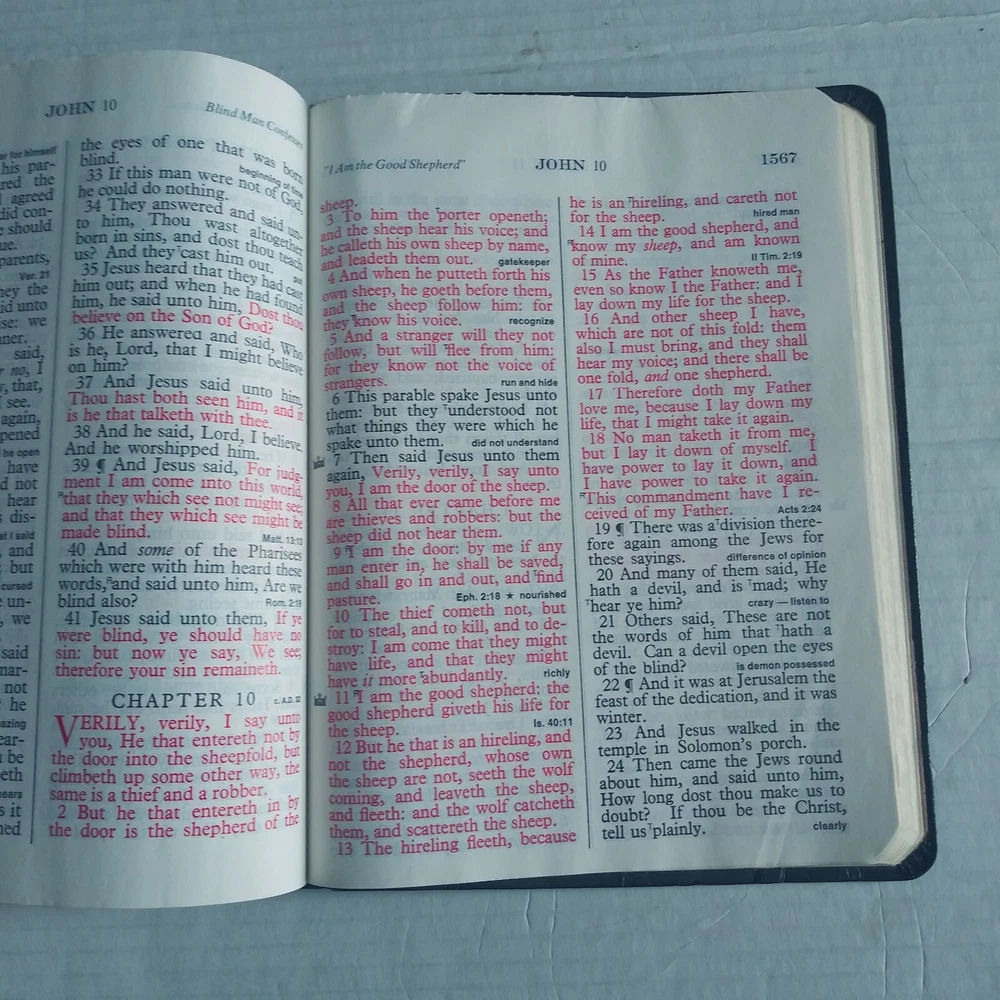 JOHN 10
Blind Man Confesses
for himself
his par-
red the
agreed
did con-
should
ue.
parents,
Ver. 21
hey the
id unto
ise: we
nner.
said,
r no, I
y, that,
see.
again,
pened
he open
have
d not
hear
s dis-
at I said
, and
; but
cursed
e un-
, we
said
mar-
not
he
azing
ear-
be
eth
hears
s it
ned
the eyes of one that was born
blind.
beginning of time
33 If this man were not of God,
he could do nothing.
34 They answered and said un-
to him, Thou wast altogether
born in sins, and dost thou teach
us? And they cast him out.
put
35 Jesus heard that they had cast
him out; and when he had found
him, he said unto him, Dost thou
believe on the Son of God?
36 He answered and said, Who
is he, Lord, that I might believe
on him?
37 And Jesus said unto him,
Thou hast both seen him, and it
is he that talketh with thee.
38 And he said, Lord, I believe.
And he worshipped him.
39 ¶ And Jesus said, For judg-
ment I am come into this world,
R that they which see not might see;
and that they which see might be
made blind. Matt. 13:13
40 And some of the Pharisees
which were with him heard these
words, R and said unto him, Are we
blind also? Rom. 2:19
41 Jesus said unto them, If ye
were blind, ye should have no
sin: but now ye say, We see;
therefore your sin remaineth.
CHAPTER 10 c. A.D. 32
VERILY, verily, I say unto
you, He that entereth not by
the door into the sheepfold, but
climbeth up some other way, the
same is a thief and a robber.
2 But he that entereth in by
the door is the shepherd of the
"I Am the Good Shepherd"
JOHN 10
1567
sheep.
3 To him the T porter openeth;
and the sheep hear his voice; and
he calleth his own sheep by name,
and leadeth them out. gatekeeper
4 And when he putteth forth his
own sheep, he goeth before them,
and the sheep follow him: for
they T know his voice. recognize
5 And a stranger will they not
follow, but will T flee from him:
for they know not the voice of
strangers. run and hide
6 This parable spake Jesus unto
them: but they T understood not
what things they were which he
spake unto them. did not understand
7 Then said Jesus unto them
again, Verily, verily, I say unto
you, I am the door of the sheep.
8 All that ever came before me
are thieves and robbers: but the
sheep did not hear them.
9 R I am the door: by me if any
man enter in, he shall be saved,
and shall go in and out, and T find
pasture. Eph. 2:18 ★ nourished
10 The thief cometh not, but
for to steal, and to kill, and to de-
stroy: I am come that they might
have life, and that they might
have it more T abundantly. richly
11 R I am the good shepherd: the
good shepherd giveth his life for
the sheep. Is. 40:11
12 But he that is an hireling, and
not the shepherd, whose own
the sheep are not, seeth the wolf
coming, and leaveth the sheep,
and fleeth: and the wolf catcheth
them, and scattereth the sheep.
13 The hireling fleeth, because
he is an T hireling, and careth not
for the sheep. hired man
14 I am the good shepherd, and
R know my sheep, and am known
of mine. II Tim. 2:19
15 As the Father knoweth me,
even so know I the Father: and I
lay down my life for the sheep.
16 And other sheep I have,
which are not of this fold: them
also I must bring, and they shall
hear my voice; and there shall be
one fold, and one shepherd.
17 Therefore doth my Father
love me, because I lay down my
life, that I might take it again.
18 No man taketh it from me,
but I lay it down of myself. I
have power to lay it down, and
I have power to take it again.
R This commandment have I re-
ceived of my Father. Acts 2:24
19 ¶ There was a T division there-
fore again among the Jews for
these sayings. difference of opinion
20 And many of them said, He
hath a devil, and is T mad; why
T hear ye him? crazy — listen to
21 Others said, These are not
the words of him that T hath a
devil. Can a devil open the eyes
of the blind? is demon possessed
22 ¶ And it was at Jerusalem the
feast of the dedication, and it was
winter.
23 And Jesus walked in the
temple in Solomon's porch.
24 Then came the Jews round
about him, and said unto him,
How long dost thou make us to
doubt? If thou be the Christ,
tell us T plainly. clearly